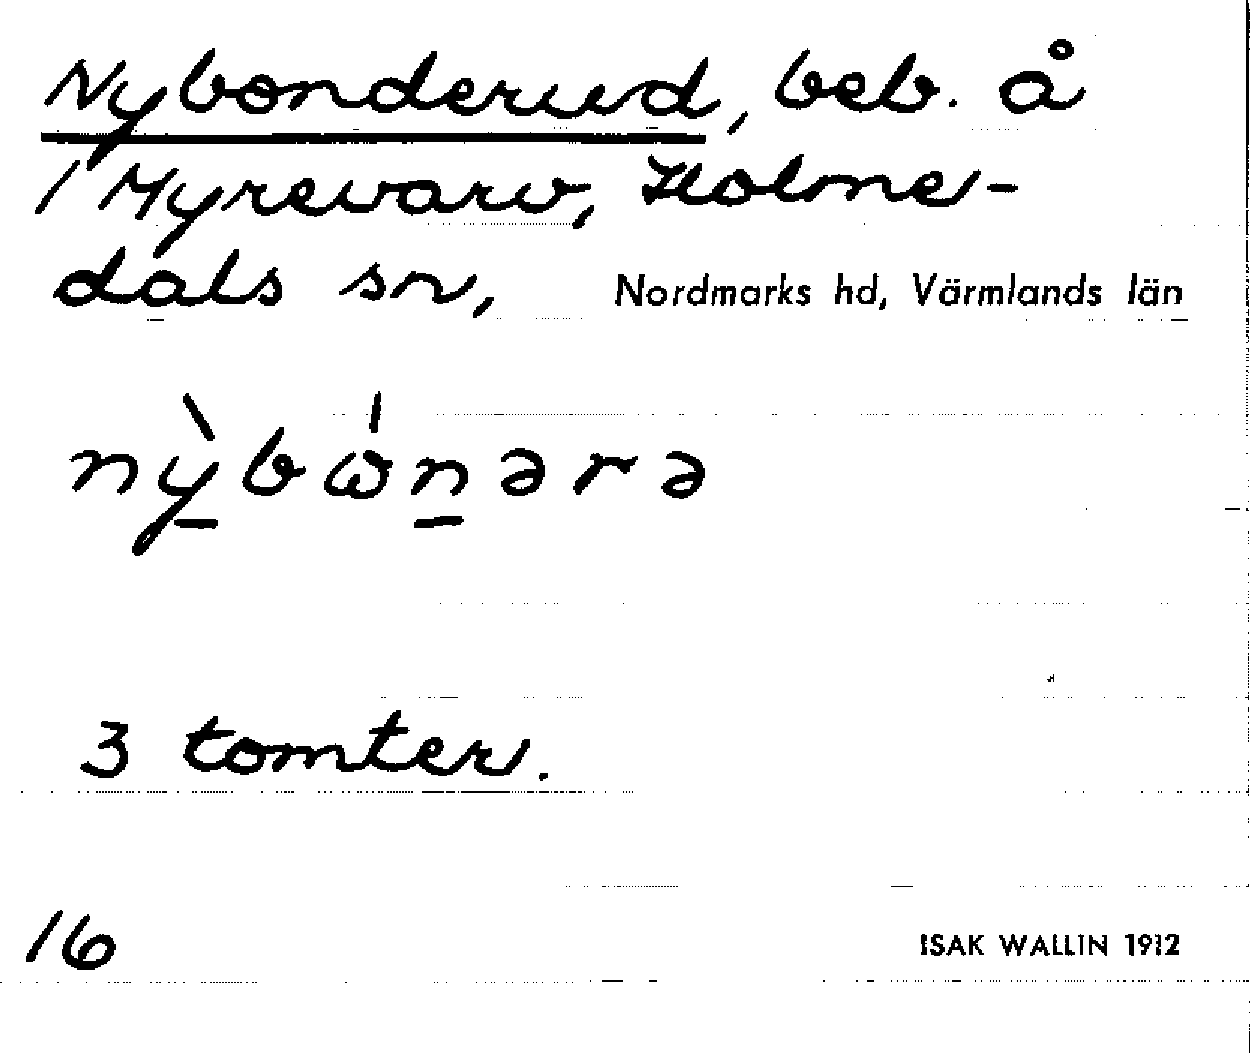 Nybonderud, beb. å
1 Myrevarv, Holme-
dals sn, Nordmarks hd, Värmlands län
nỳ̠bώn̠ərə
3 tomter.
16 ISAK WALLIN 1912